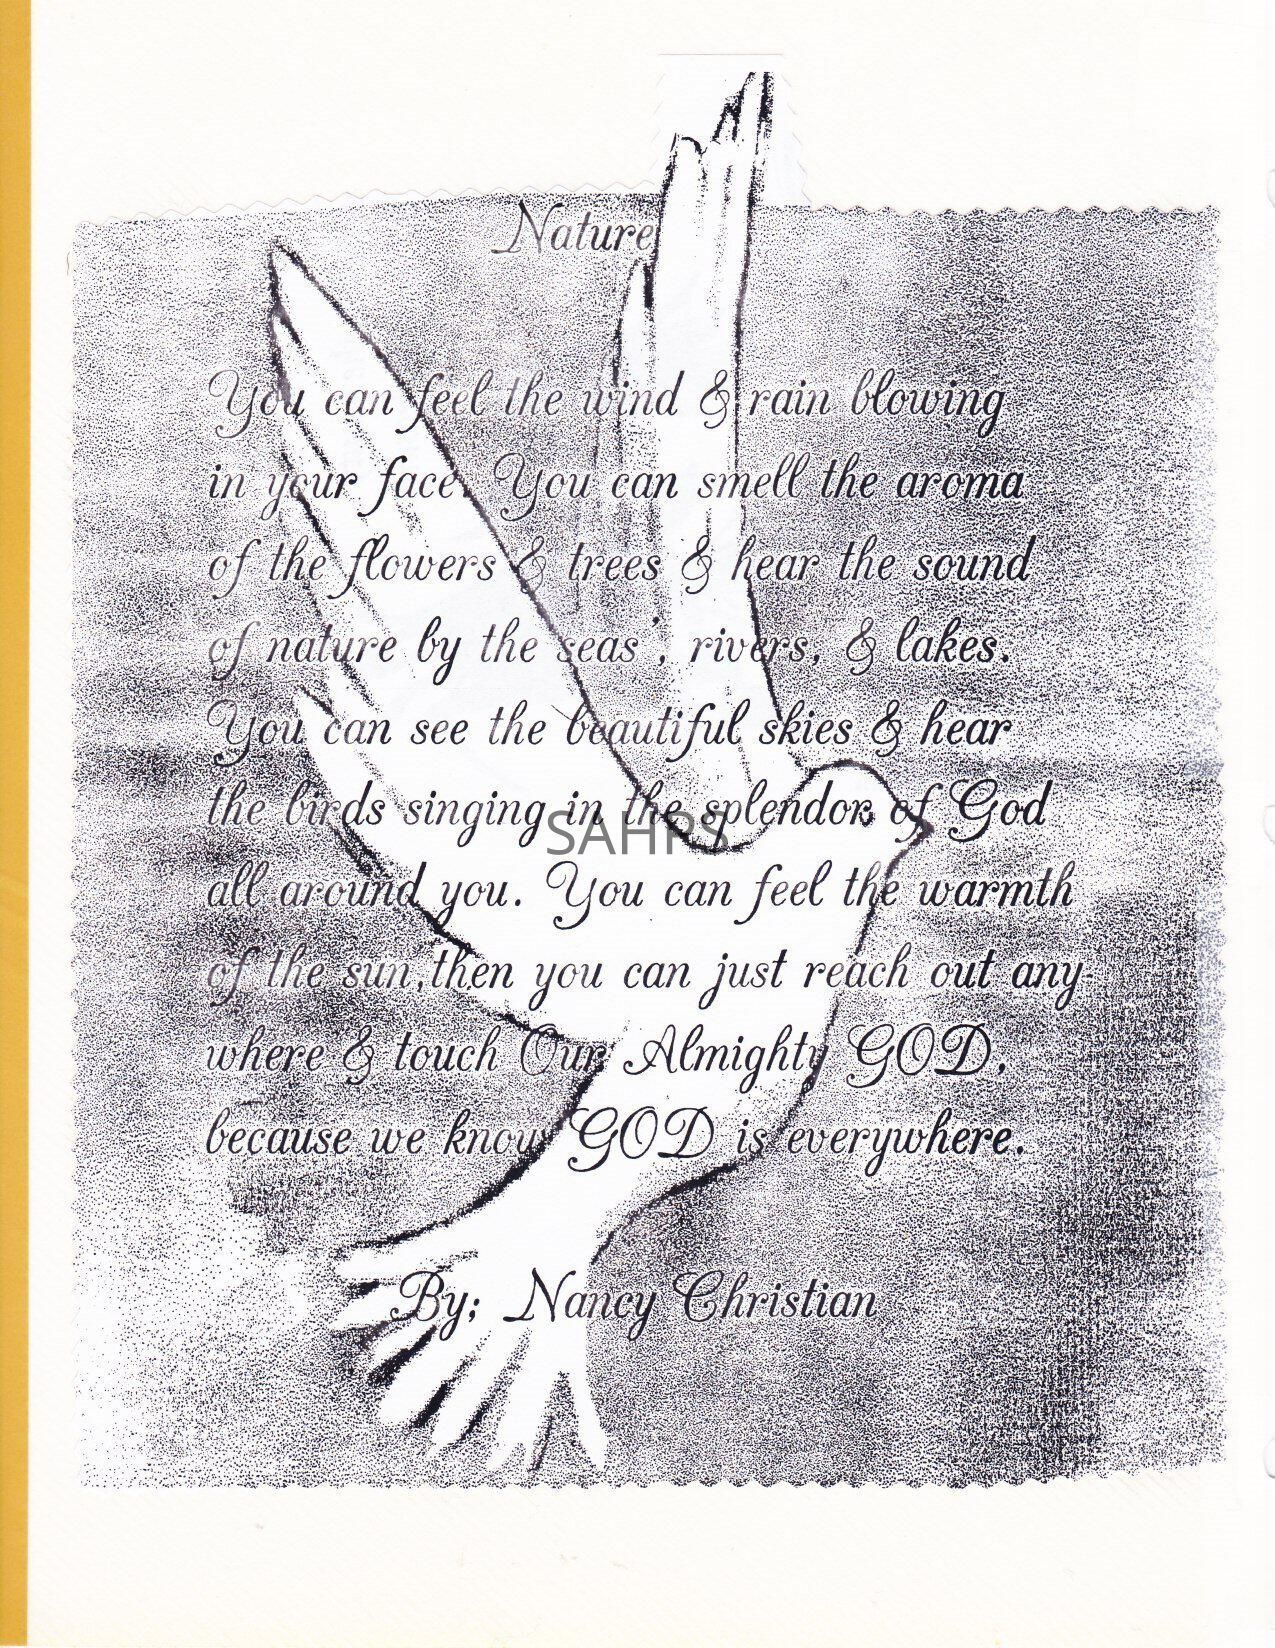 Nature
You can feel the wind & rain blowing
in your face. You can smell the aroma
of the flowers & trees & hear the sound
of nature by the seas', rivers, & lakes.
You can see the beautiful skies & hear
the birds singing in the splendor of God
SAHRS
all around you. You can feel the warmth
of the sun, then you can just reach out any-
where & touch Our Almighty GOD,
because we know GOD is everywhere.
By; Nancy Christian